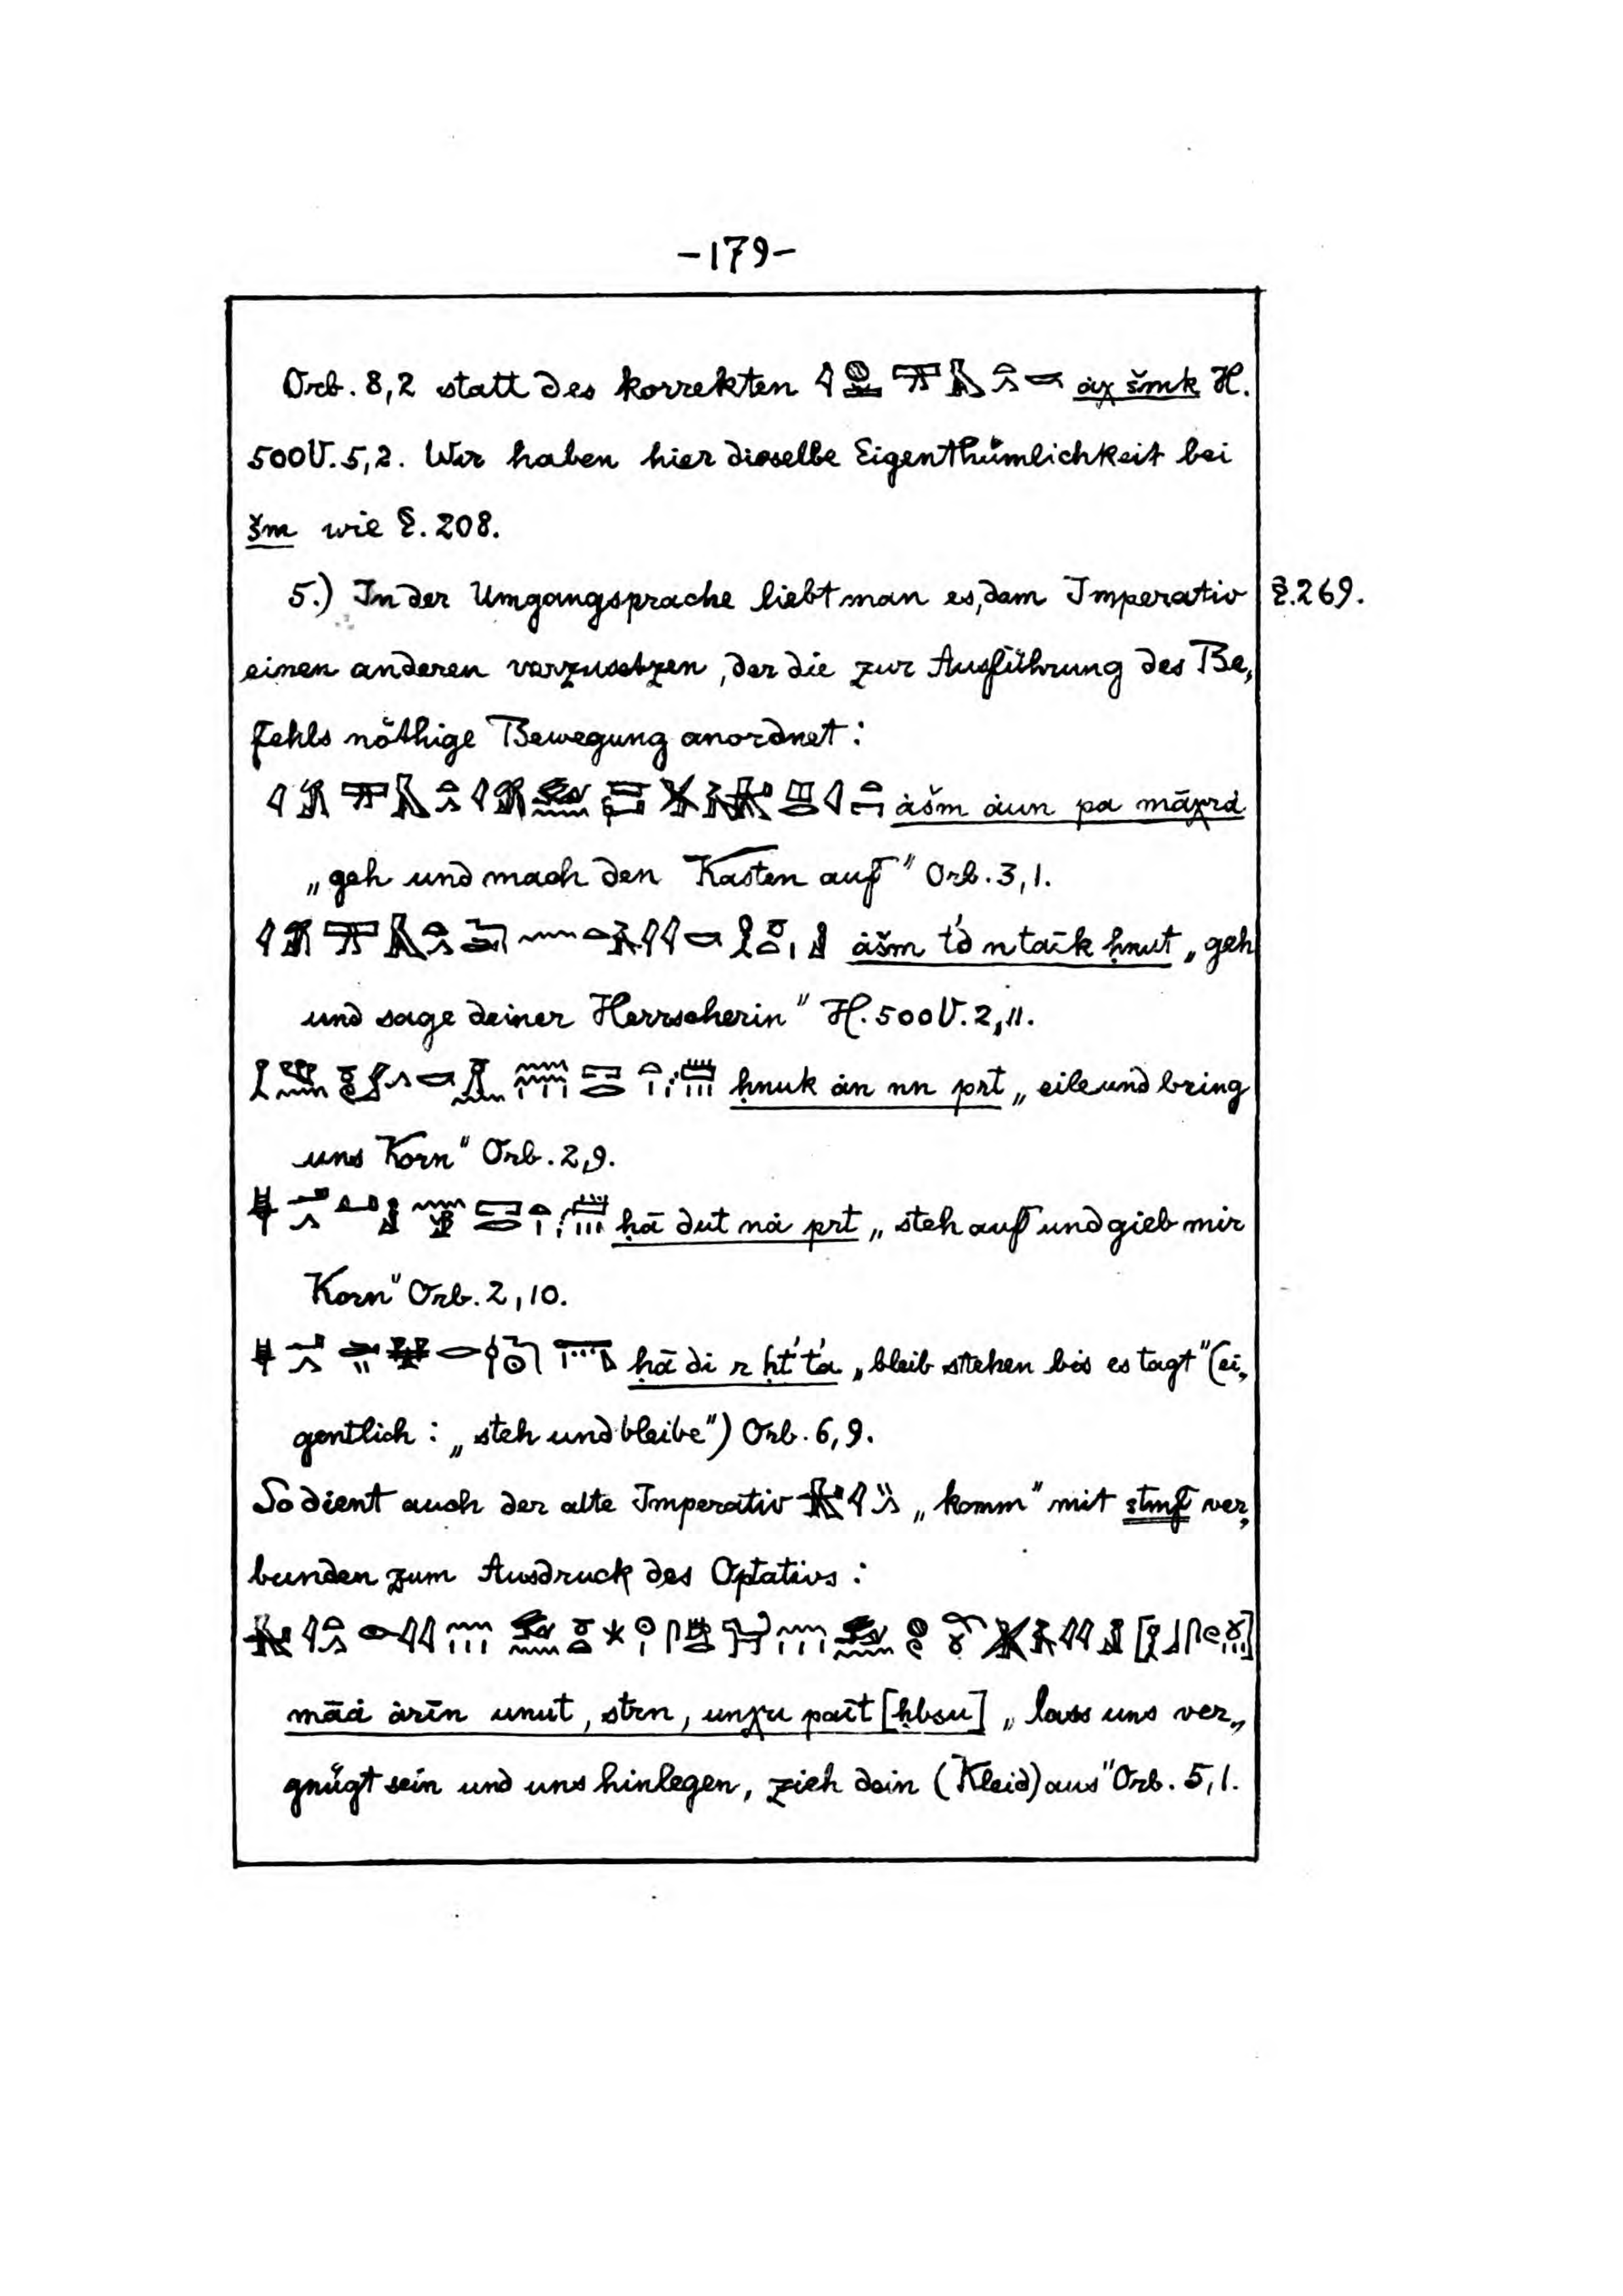 -179-
Orb. 8,2 statt des korrekten ȧχ šmk H.
500 V. 5,2. Wir haben hier dieselbe Eigenthümlichkeit bei
šm wie §. 208.
5.) In der Umgangsprache liebt man es, dem Imperativ §. 269.
einen anderen vorzusetzen, der die zur Ausführung des Be,
fehls nöthige Bewegung anordnet:
ȧšm ȧun pa māχrȧ
„geh und mach den Kasten auf" Orb. 3,1.
ȧšm t'd n taīk ḥnut „geh
und sage deiner Herrscherin" H. 500 V. 2,11.
ḥnuk ȧn nn prt „eile und bring
uns Korn" Orb. 2,9.
ḥā dut nȧ prt „steh auf und gieb mir
Korn" Orb. 2,10.
ḥā di r ḥt' t'a „bleib stehen bis es tagt" (ei,
gentlich: „steh und bleibe") Orb. 6,9.
So dient auch der alte Imperativ „komm" mit stmf ver,
bunden zum Ausdruck des Optativs:
māȧ ȧrīn unut, strn, unχu paīt [ḥbsu] „lass uns ver„
gnügt sein und uns hinlegen, zieh dein (Kleid) aus" Orb. 5,1.